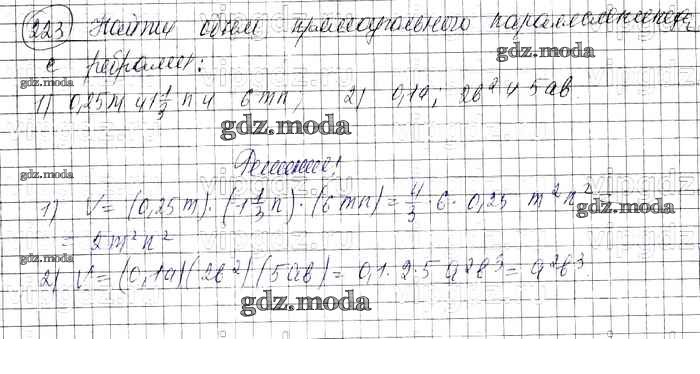 223) Найти объем прямоугольного параллелепипеда
gdz.moda
с ребрами:
gdz.moda
1) 0,25m; 1 1/3 n и 6mn; 2) 0,1a; 2b² и 5ab
gdz.moda
Решение:
gdz.moda
1) V = (0,25m)·(1 1/3 n)·(6mn) = 4/3 · 6 · 0,25 m²n² =
gdz.moda
= 2m²n²
gdz.moda
2) V = (0,1a)(2b²)(5ab) = 0,1·2·5 a²b³ = a²b³
gdz.moda